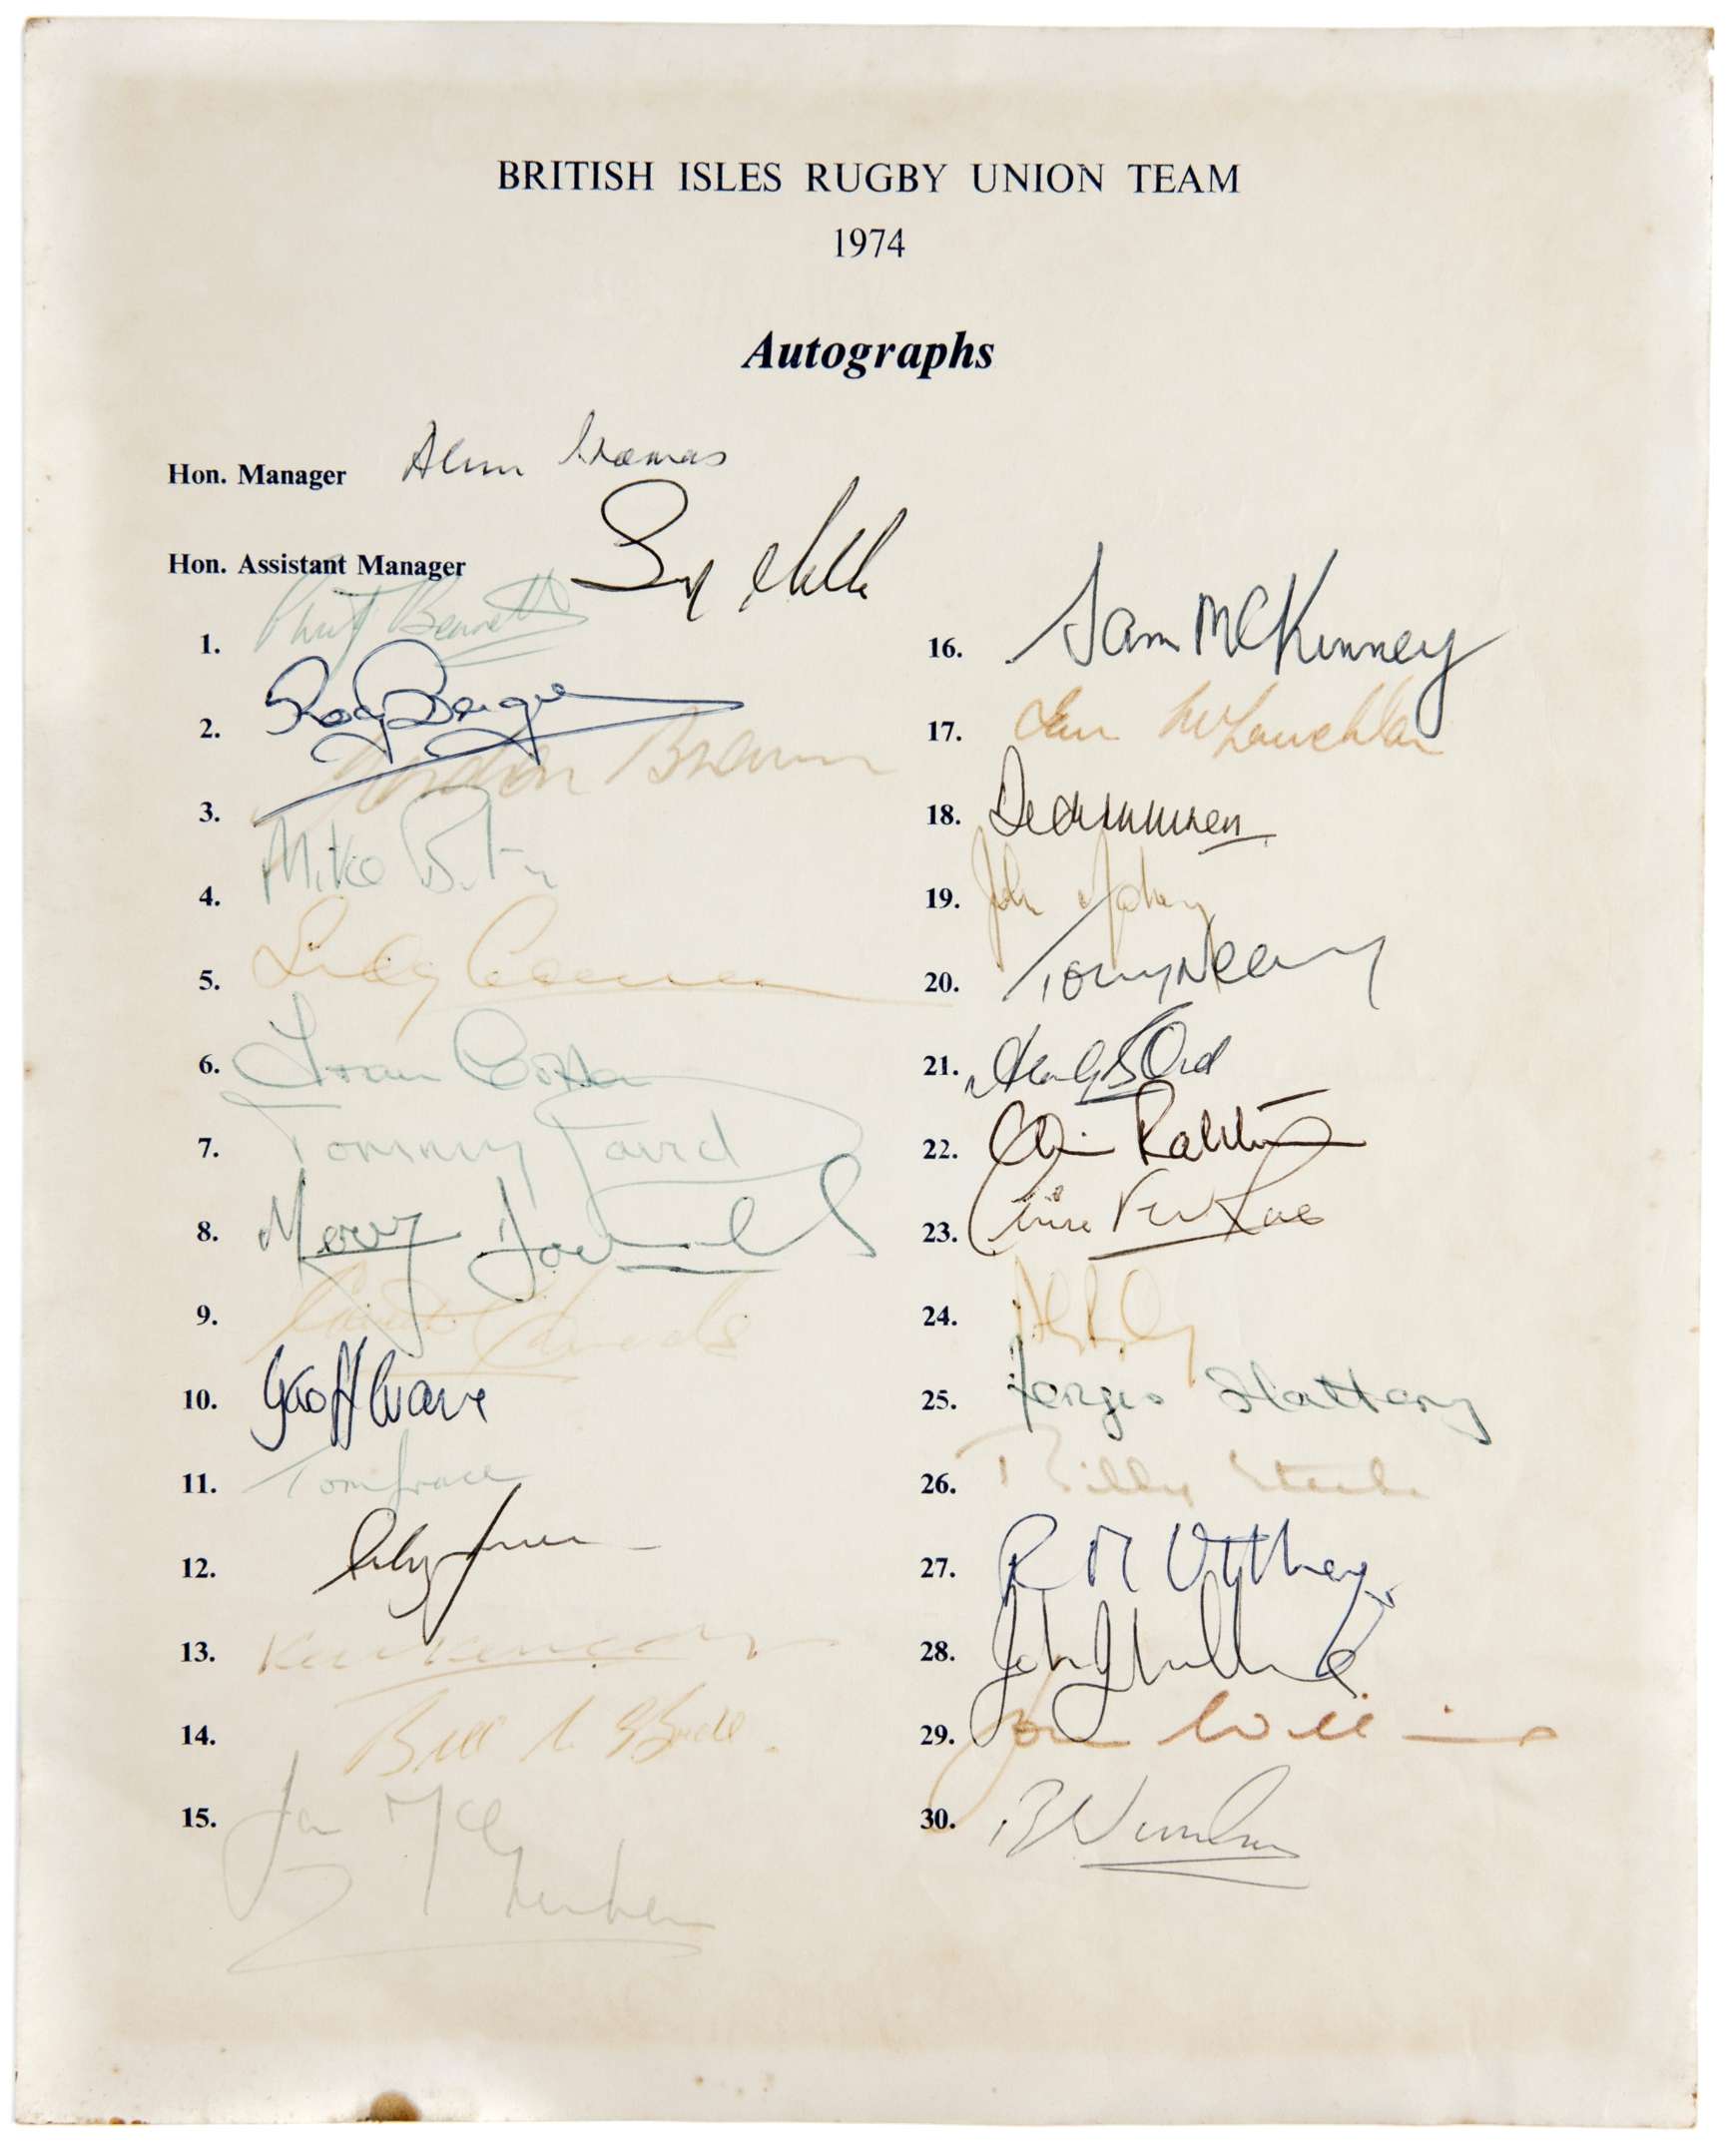 BRITISH ISLES RUGBY UNION TEAM
1974
Autographs
Hon. Manager Alun Thomas
Hon. Assistant Manager Syd Millar
1. Phil Bennett
2. Roger
3. Gordon Brown
4. Mike Burton
5.
6.
7. Tommy David
8. Mervyn Davies
9. Gareth Edwards
10. Geoff Evans
11. Tom Grace
12.
13. Ken Kennedy
14. Bill
15. Ian McGeechan
16. Sam McKinney
17. Ian McLauchlan
18.
19. John Moloney
20. Tony Neary
21.
22. Chris Ralston
23. Clive Rees
24.
25. Fergus Slattery
26. Billy Steele
27. R M Uttley
28. John J Williams
29. John Williams
30. B Windsor